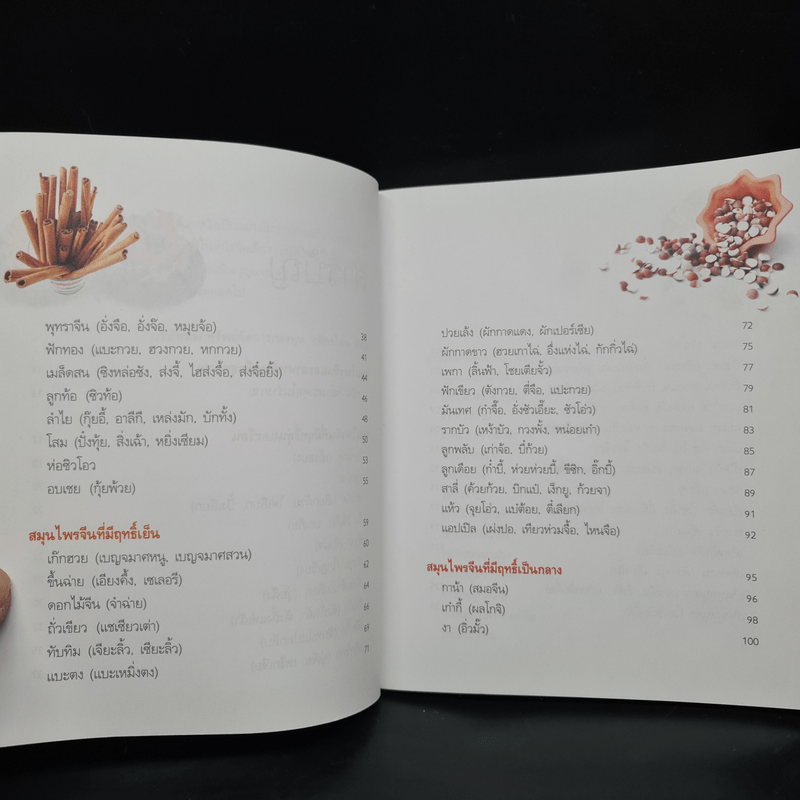 พุทราจีน (อั่งจือ, อั่งจ๊อ, หมุยจ้อ) 38
ฟักทอง (แบะกวย, ฮวงกวย, หกกวย) 41
เมล็ดสน (ซิงหล่อซัง, ส่งจี้, ไฮส่งจื้อ, ส่งจื๋อยิ้ง) 44
ลูกท้อ (ซิวท้อ) 46
ลำไย (กุ๊ยอี้, อาลีกี, เหล่งมัก, บักทั้ง) 48
โสม (ปั่งทุ้ย, สิ่งเฉ้า, หยิ่งเซียม) 50
ห่อซิวโอว 53
อบเชย (กุ้ยพ้วย) 55
สมุนไพรจีนที่มีฤทธิ์เย็น 59
เก๊กฮวย (เบญจมาศหนู, เบญจมาศสวน) 60
ขึ้นฉ่าย (เฮียงคึ้ง, เซเลอรี) 62
ดอกไม้จีน (จำฉ่าย) 64
ถั่วเขียว (แชเซียวเต่า) 66
ทับทิม (เจียะลิ้ว, เซียะลิ้ว) 69
แบะตง (แบะเหมิ่งตง) 71
ปวยเล้ง (ผักกาดแดง, ผักเปอร์เซีย) 72
ผักกาดขาว (ฮวยเกาไฉ่, อึ่งแห่งไฉ่, กักกิ่วไฉ่) 75
เพกา (ลิ้นฟ้า, โซยเตียจั้ว) 77
ฟักเขียว (ตังกวย, ตี่จือ, แปะกวย) 79
มันเทศ (กำจื๊อ, อั่งซัวเอี๊ยะ, ซัวโอ่ว) 81
รากบัว (เหง้าบัว, กวงพั้ง, หน่อยเก๋า) 83
ลูกพลับ (เก่าจ้อ, บี่ก้วย) 85
ลูกเดือย (ก๋ำบี้, ห่วยห่วยบี้, ขีซิก, อิ๊กบี้) 87
สาลี่ (ค้วยก้วย, บิกแป๋, เง็กยู, ก้วยจา) 89
แห้ว (จุยโอ่ว, แบ่ต้อย, ตี่เลียก) 91
แอปเปิล (เผ่งปอ, เทียวห่วมจื้อ, ไหนจือ) 92
สมุนไพรจีนที่มีฤทธิ์เป็นกลาง 95
กาน้า (สมอจีน) 96
เก๋ากี้ (ผลโกจิ) 98
งา (อิ่วมั๊ว) 100